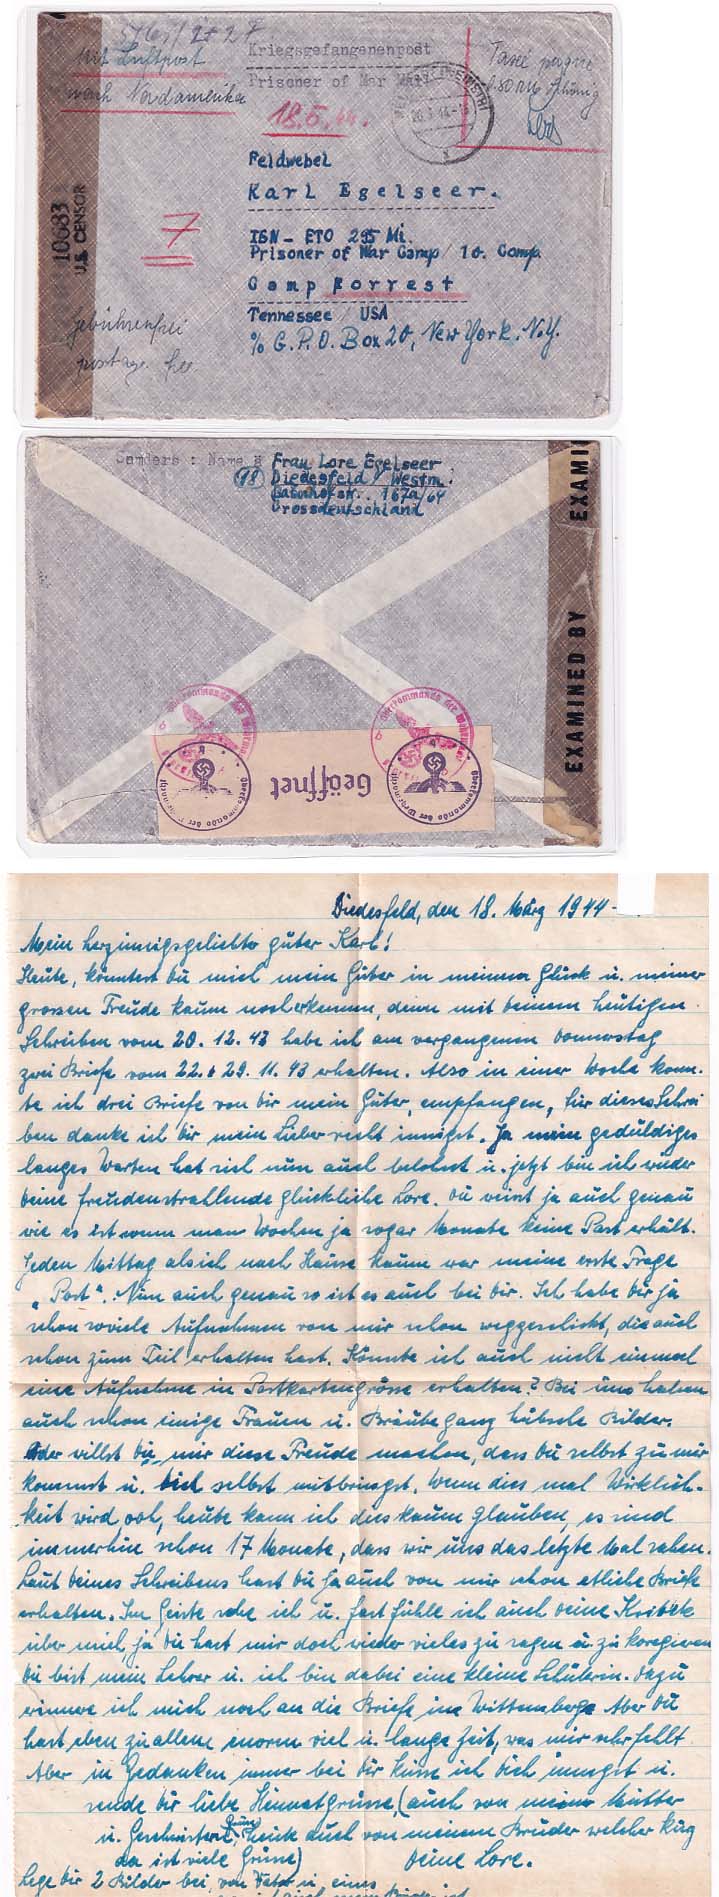 Mit Luftpost
nach Nordamerika
Kriegsgefangenenpost
Prisoner of War Mail
Taxe perçue
18.5.44.
Feldwebel
Karl Egelseer.
ISN - ETO 295 Mi.
Prisoner of War Camp / 10. Comp.
Camp Forrest
Tennessee / USA
% G.P.O. Box 20, New York. N.Y.
10683
U.S. CENSOR
7
Gebührenfrei
postage free
Name
Frau Lore Egelseer
(18) Diedesfeld / Westm.
Bahnhofstr. 167a/64
Grossdeutschland
EXAMINED BY
EXAMI
Oberkommando der Wehrmacht
Oberkommando der Wehrmacht
Geöffnet
Oberkommando der Wehrmacht
Oberkommando der Wehrmacht
Diedesfeld, den 18. März 1944
Mein herzinnigsgeliebter guter Karl!
Heute, könntest du mich mein Guter in meinem Glück u. meiner
grossen Freude kaum noch erkennen, denn mit deinem heutigen
Schreiben vom 20. 12. 43 habe ich am vergangenen Donnerstag
zwei Briefe vom 22. 29. 11. 43 erhalten. Also in einer Woche konn-
te ich drei Briefe von dir mein Guter, empfangen, für dieses Schrei
ben danke ich dir mein Lieber recht innigst. Ja mein geduldiges
langes Warten hat sich nun auch belohnt u. jetzt bin ich wieder
deine freudenstrahlende glückliche Lore. Du weist ja auch genau
wie es ist wenn man Wochen ja sogar Monate keine Post erhält.
Jeden Mittag als ich nach Hause kaum war meine erste Frage
"Post". Nun auch genau so ist es auch bei dir. Ich habe dir ja
schon soviele Aufnahmen von mir schon weggeschickt, die auch
schon zum Teil erhalten hast. Könnte ich auch nicht einmal
eine Aufnahme in Postkartengrösse erhalten? Bei uns haben
auch schon einige Frauen u. Bräute ganz hübsche Bilder.
Oder willst du mir diese Freude machen, dass du selbst zu mir
kommst u. dich selbst mitbringst. Wenn dies mal Wirklich-
keit wird ooh, heute kann ich das kaum glauben, es sind
immerhin schon 17 Monate, dass wir uns das letzte Mal sahen.
Laut deines Schreibens hast du ja auch von mir schon etliche Briefe
erhalten. Im Geiste sehe ich u. fast fühle ich auch deine Kritik
über mich, ja du hast mir doch wieder vieles zu sagen u. zu koregieren
du bist mein Lehrer u. ich bin dabei eine kleine Schülerin. Dazu
erinnere ich mich noch an die Briefe im Wittenberge Aber du
hast eben zu allem enorm viel u. lange Zeit, was mir sehr fehlt.
Aber in Gedanken immer bei dir küsse ich dich innigst u.
sende dir liebe Heimatgrüsse, (auch von meiner Mutter
u. Geschwister Grüsse, heute auch von meinem Bruder welcher
da ist viele Grüsse) Deine Lore.
Lege dir 2 Bilder bei, von Vater u. eines